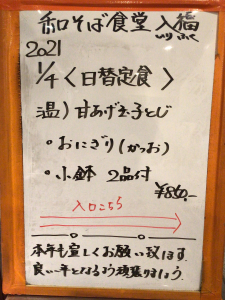 和そば食堂 入福
2021
1/4〈日替定食〉
温) 甘あげ玉子とじ
・おにぎり(かつお)
・小鉢 2品付
¥860.-
入口こちら
本年も宜しくお願い致します
良い年となるよう頑張りましょう